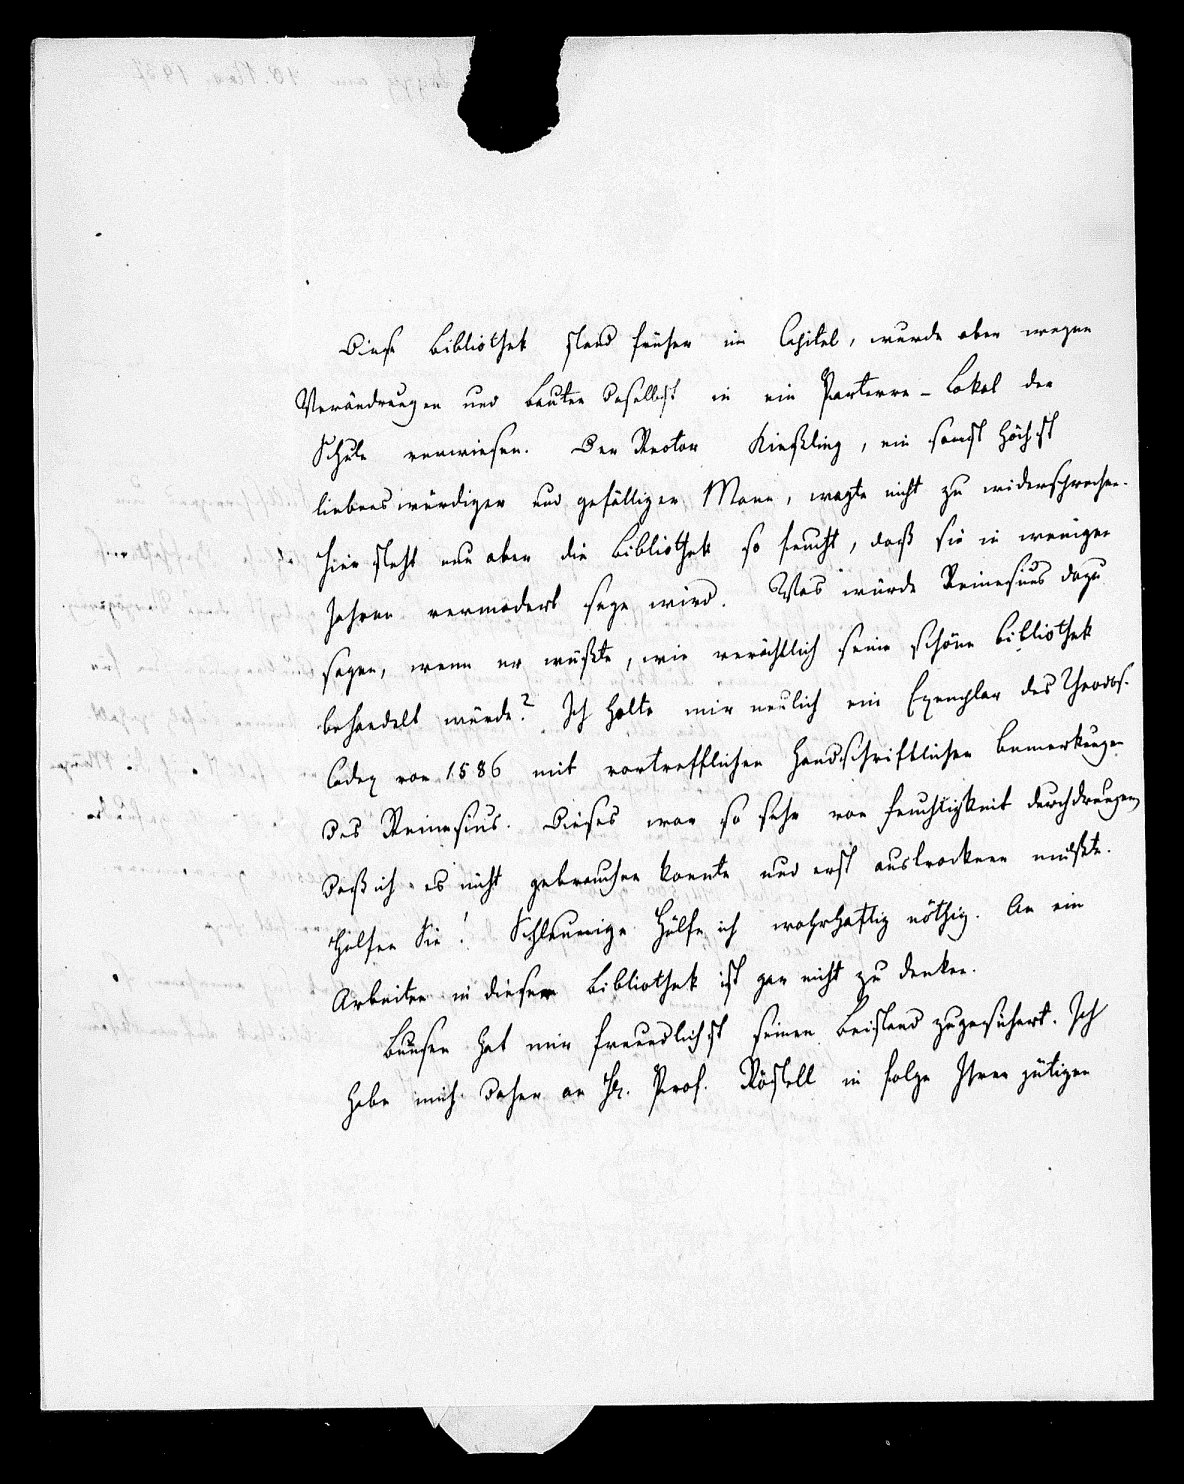 Diese Bibliothek stand früher im Capitel, wurde aber wegen
Verändrungen und Bauten daselbst in ein Parterre-Lokal der
Schule verwiesen. Der Rector Kießling, ein sonst höchst
liebenswürdiger und gefälliger Mann, wagte nicht zu widersprechen.
Hier steht nun aber die Bibliothek so feucht, daß sie in wenigen
Jahren vermodert seyn wird. Was würde Reinesius dazu
sagen, wenn er wüßte, wie verächtlich seine schöne Bibliothek
behandelt würde? Ich holte mir neulich ein Exemplar des Theodos.
Codex von 1586 mit vortrefflichen handschriftlichen Bemerkungen
des Reinesius. Dieses war so sehr von Feuchtigkeit durchdrungen,
daß ich es nicht gebrauchen konnte und erst austrocknen mußte.
Helfen Sie! Schleunige Hülfe ich wahrhaftig nöthig. An ein
Arbeiten in dieser Bibliothek ist gar nicht zu denken.
Bunsen hat mir freundlichst seinen Beistand zugesichert. Ich
habe mich daher an Hr. Prof. Röstell in folge Ihrer gütigen